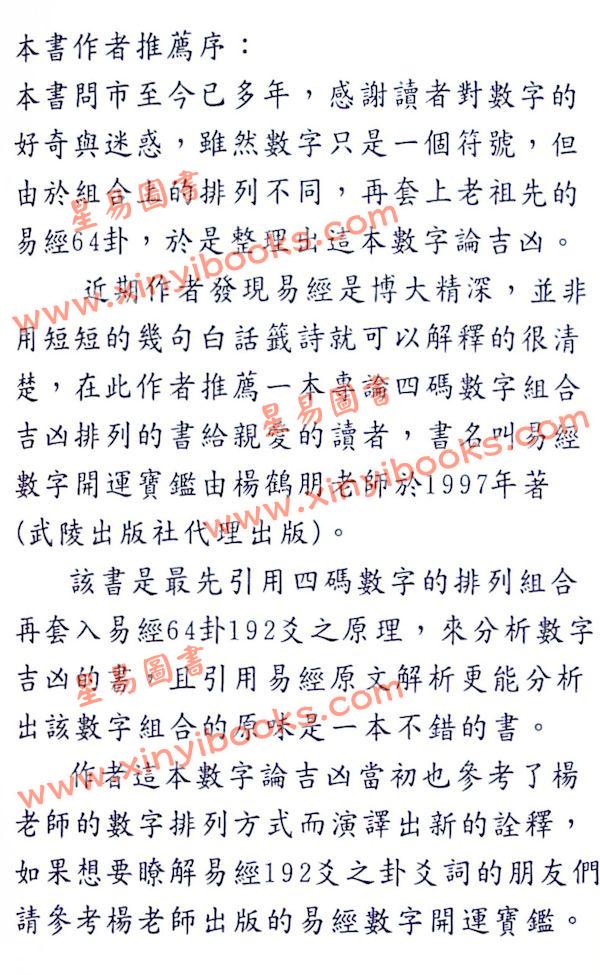 本書作者推薦序：
本書問市至今已多年，感謝讀者對數字的
好奇與迷惑，雖然數字只是一個符號，但
由於組合上的排列不同，再套上老祖先的
易經64卦，於是整理出這本數字論吉凶。
近期作者發現易經是博大精深，並非
用短短的幾句白話籤詩就可以解釋的很清
楚，在此作者推薦一本專論四碼數字組合
吉凶排列的書給親愛的讀者，書名叫易經
數字開運寶鑑由楊鶴朋老師於1997年著
(武陵出版社代理出版)。
該書是最先引用四碼數字的排列組合
再套入易經64卦192爻之原理，來分析數字
吉凶的書，且引用易經原文解析更能分析
出該數字組合的原味是一本不錯的書。
作者這本數字論吉凶當初也參考了楊
老師的數字排列方式而演譯出新的詮釋，
如果想要瞭解易經192爻之卦爻詞的朋友們
請參考楊老師出版的易經數字開運寶鑑。
星易圖書
www.xinyibooks.com
星易圖書
www.xinyibooks.com
星易圖書
www.xinyibooks.com